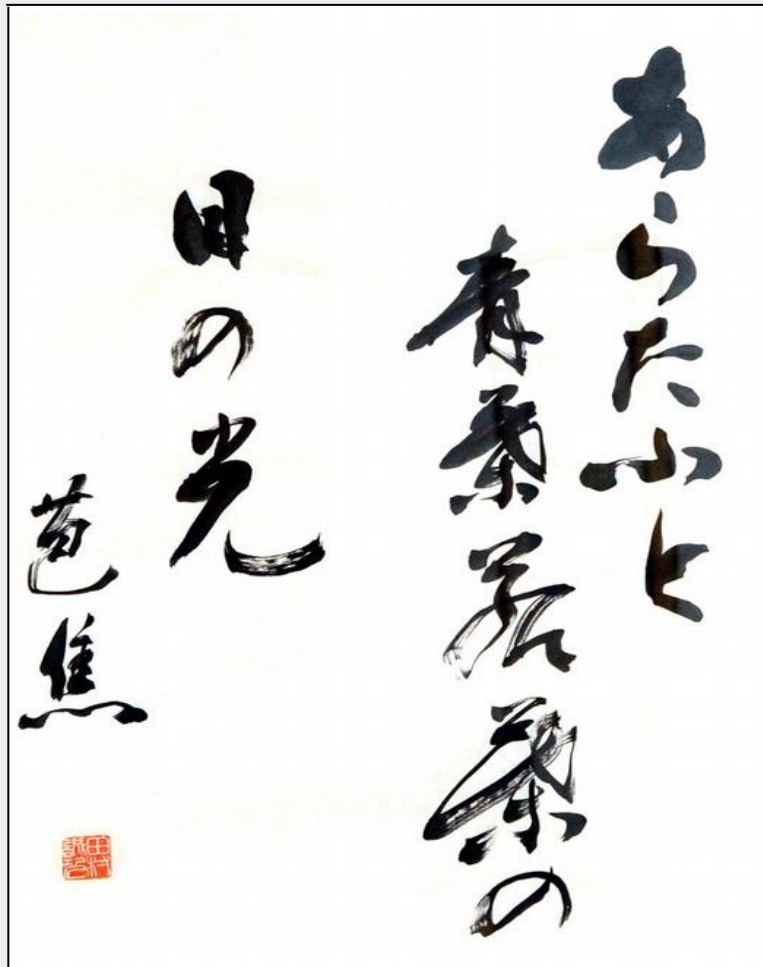 あらたふと
青葉若葉の
日の光
芭蕉